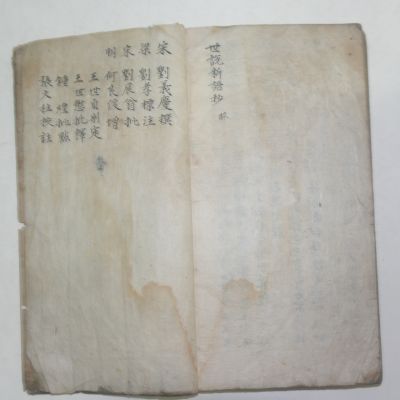 世說新語抄
宋 劉義慶撰
梁 劉孝標注
宋 劉辰翁批
明 何良俊增
王世貞刪定
王世懋批釋
鍾惺批點
張文柱校註